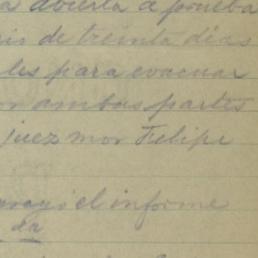 a abierta a prueba
de treinta dias
les para evacuar
or ambas partes
juez mor Felipe
el informe
da